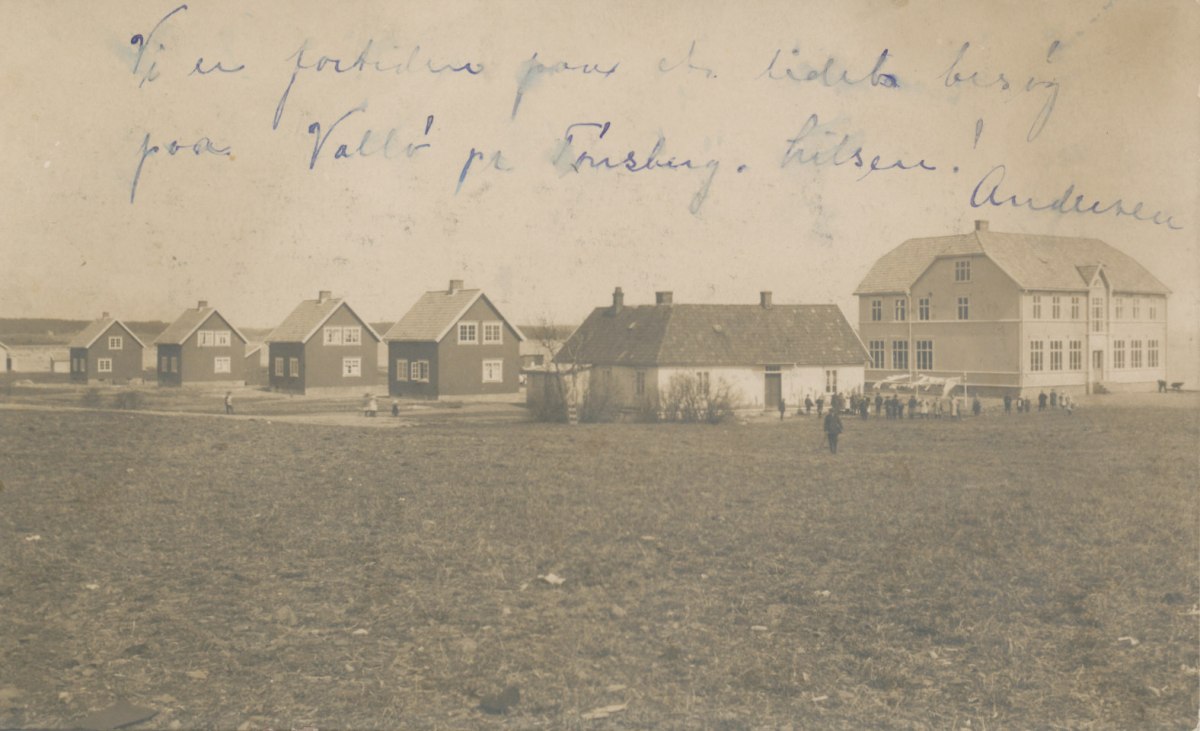 Vi er fortiden paa et lidet besøg
paa Vallö pr Tønsberg. Hilsen!
Andersen